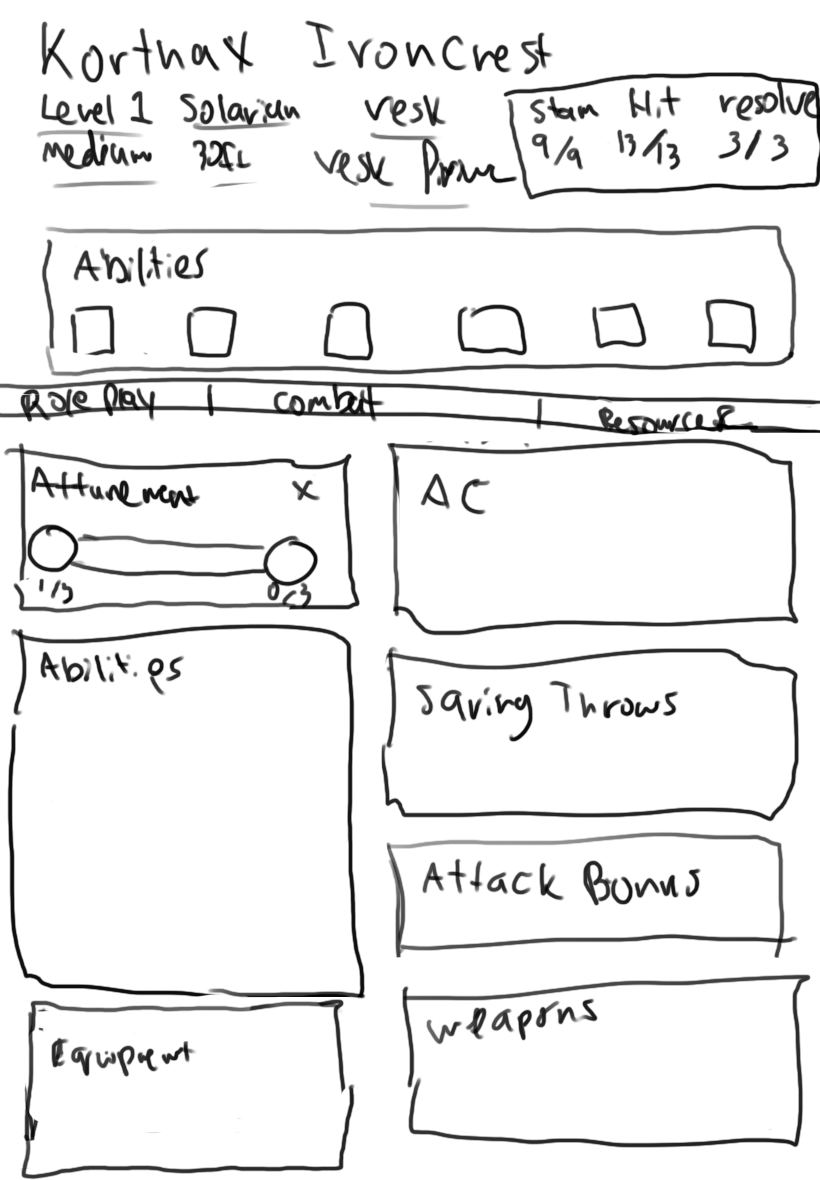 Korthax Ironcrest
Level 1 Solarian vesk
Stam Hit resolve
medium vesk Prime
9/9 13/13 3/3
Abilities
Role Play | Combat | Resources
Attunement X
1/3 0/3
AC
Abilities
Saving Throws
Attack Bonus
Equipment
weapons